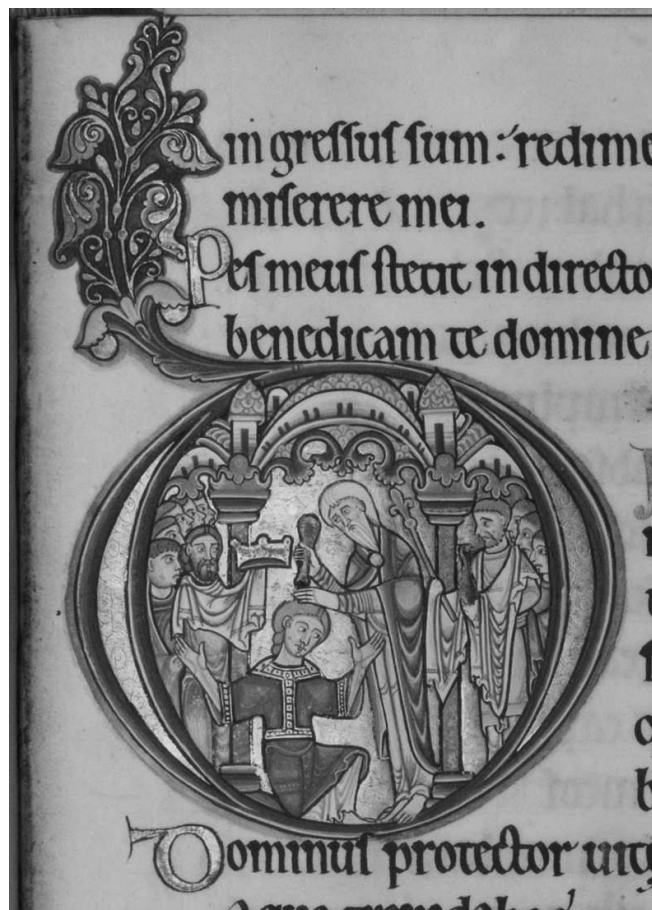 in gressus sum: redime
miserere mei.
Pes meus stetit in directo
benedicam te domine
Dominus protector uitę